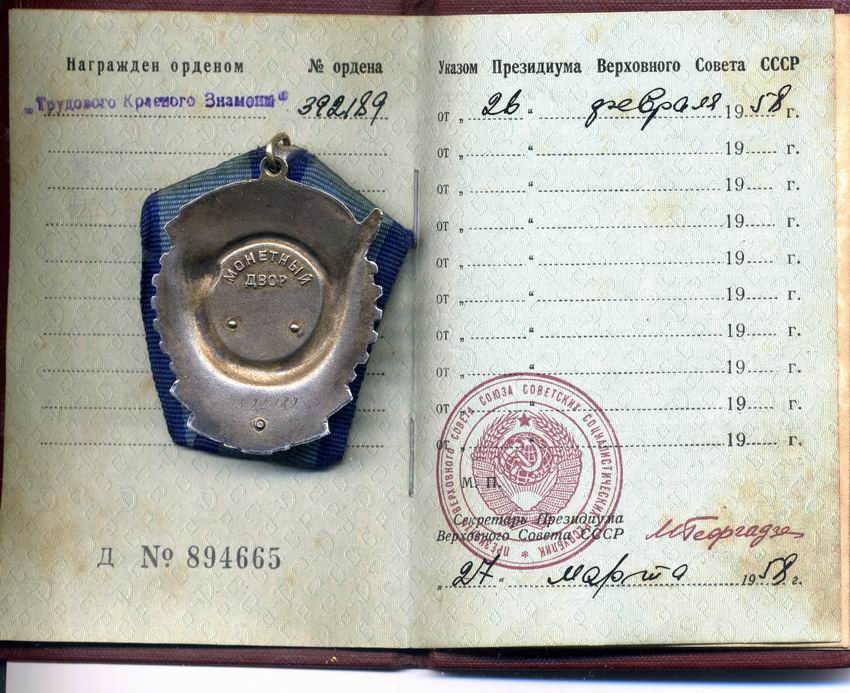 Награжден орденом № ордена
„Трудового Красного Знамени“ 392189
МОНЕТНЫЙ
ДВОР
Д № 894665
Указом Президиума Верховного Совета СССР
от „ 26 “ февраля 1958 г.
от „ “ 19 г.
от „ “ 19 г.
от „ “ 19 г.
от „ “ 19 г.
от „ “ 19 г.
от „ “ 19 г.
от „ “ 19 г.
от „ “ 19 г.
от „ “ 19 г.
ПРЕЗИДИУМ ВЕРХОВНОГО СОВЕТА СОЮЗА СОВЕТСКИХ СОЦИАЛИСТИЧЕСКИХ РЕСПУБЛИК
М. П.
Секретарь Президиума
Верховного Совета СССР МГеоргадзе
„ 27 “ марта 1958 г.